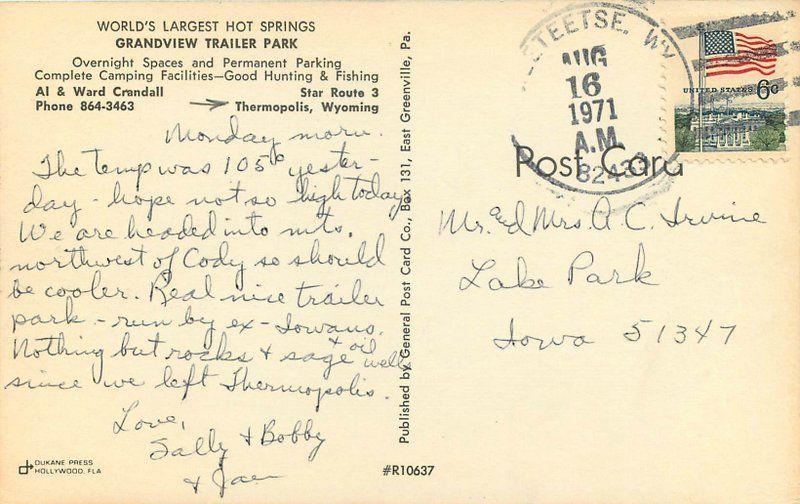 WORLD'S LARGEST HOT SPRINGS
GRANDVIEW TRAILER PARK
Overnight Spaces and Permanent Parking
Complete Camping Facilities—Good Hunting & Fishing
Al & Ward Crandall Star Route 3
Phone 864-3463 Thermopolis, Wyoming
Monday morn.
The temp was 105° yester-
day - hope not so high today
We are headed into mts.
northwest of Cody so should
be cooler. Real nice trailer
park - run by ex-Iowans.
Nothing but rocks & sage + oil wells
since we left Thermopolis.
Love,
Sally & Bobby
& Jae
DUKANE PRESS
HOLLYWOOD, FLA
Published by General Post Card Co., Box 131, East Greenville, Pa.
#R10637
EETEETSE. WY
AUG
16
1971
A.M.
82433
UNITED STATES 6c
Post Card
Mr. and Mrs. A. C. Irvine
Lake Park
Iowa 51347